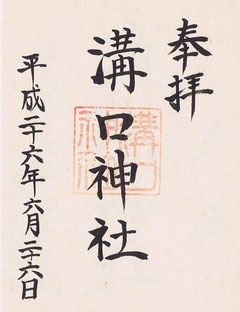 奉拝
溝口神社
平成二十六年六月二十六日